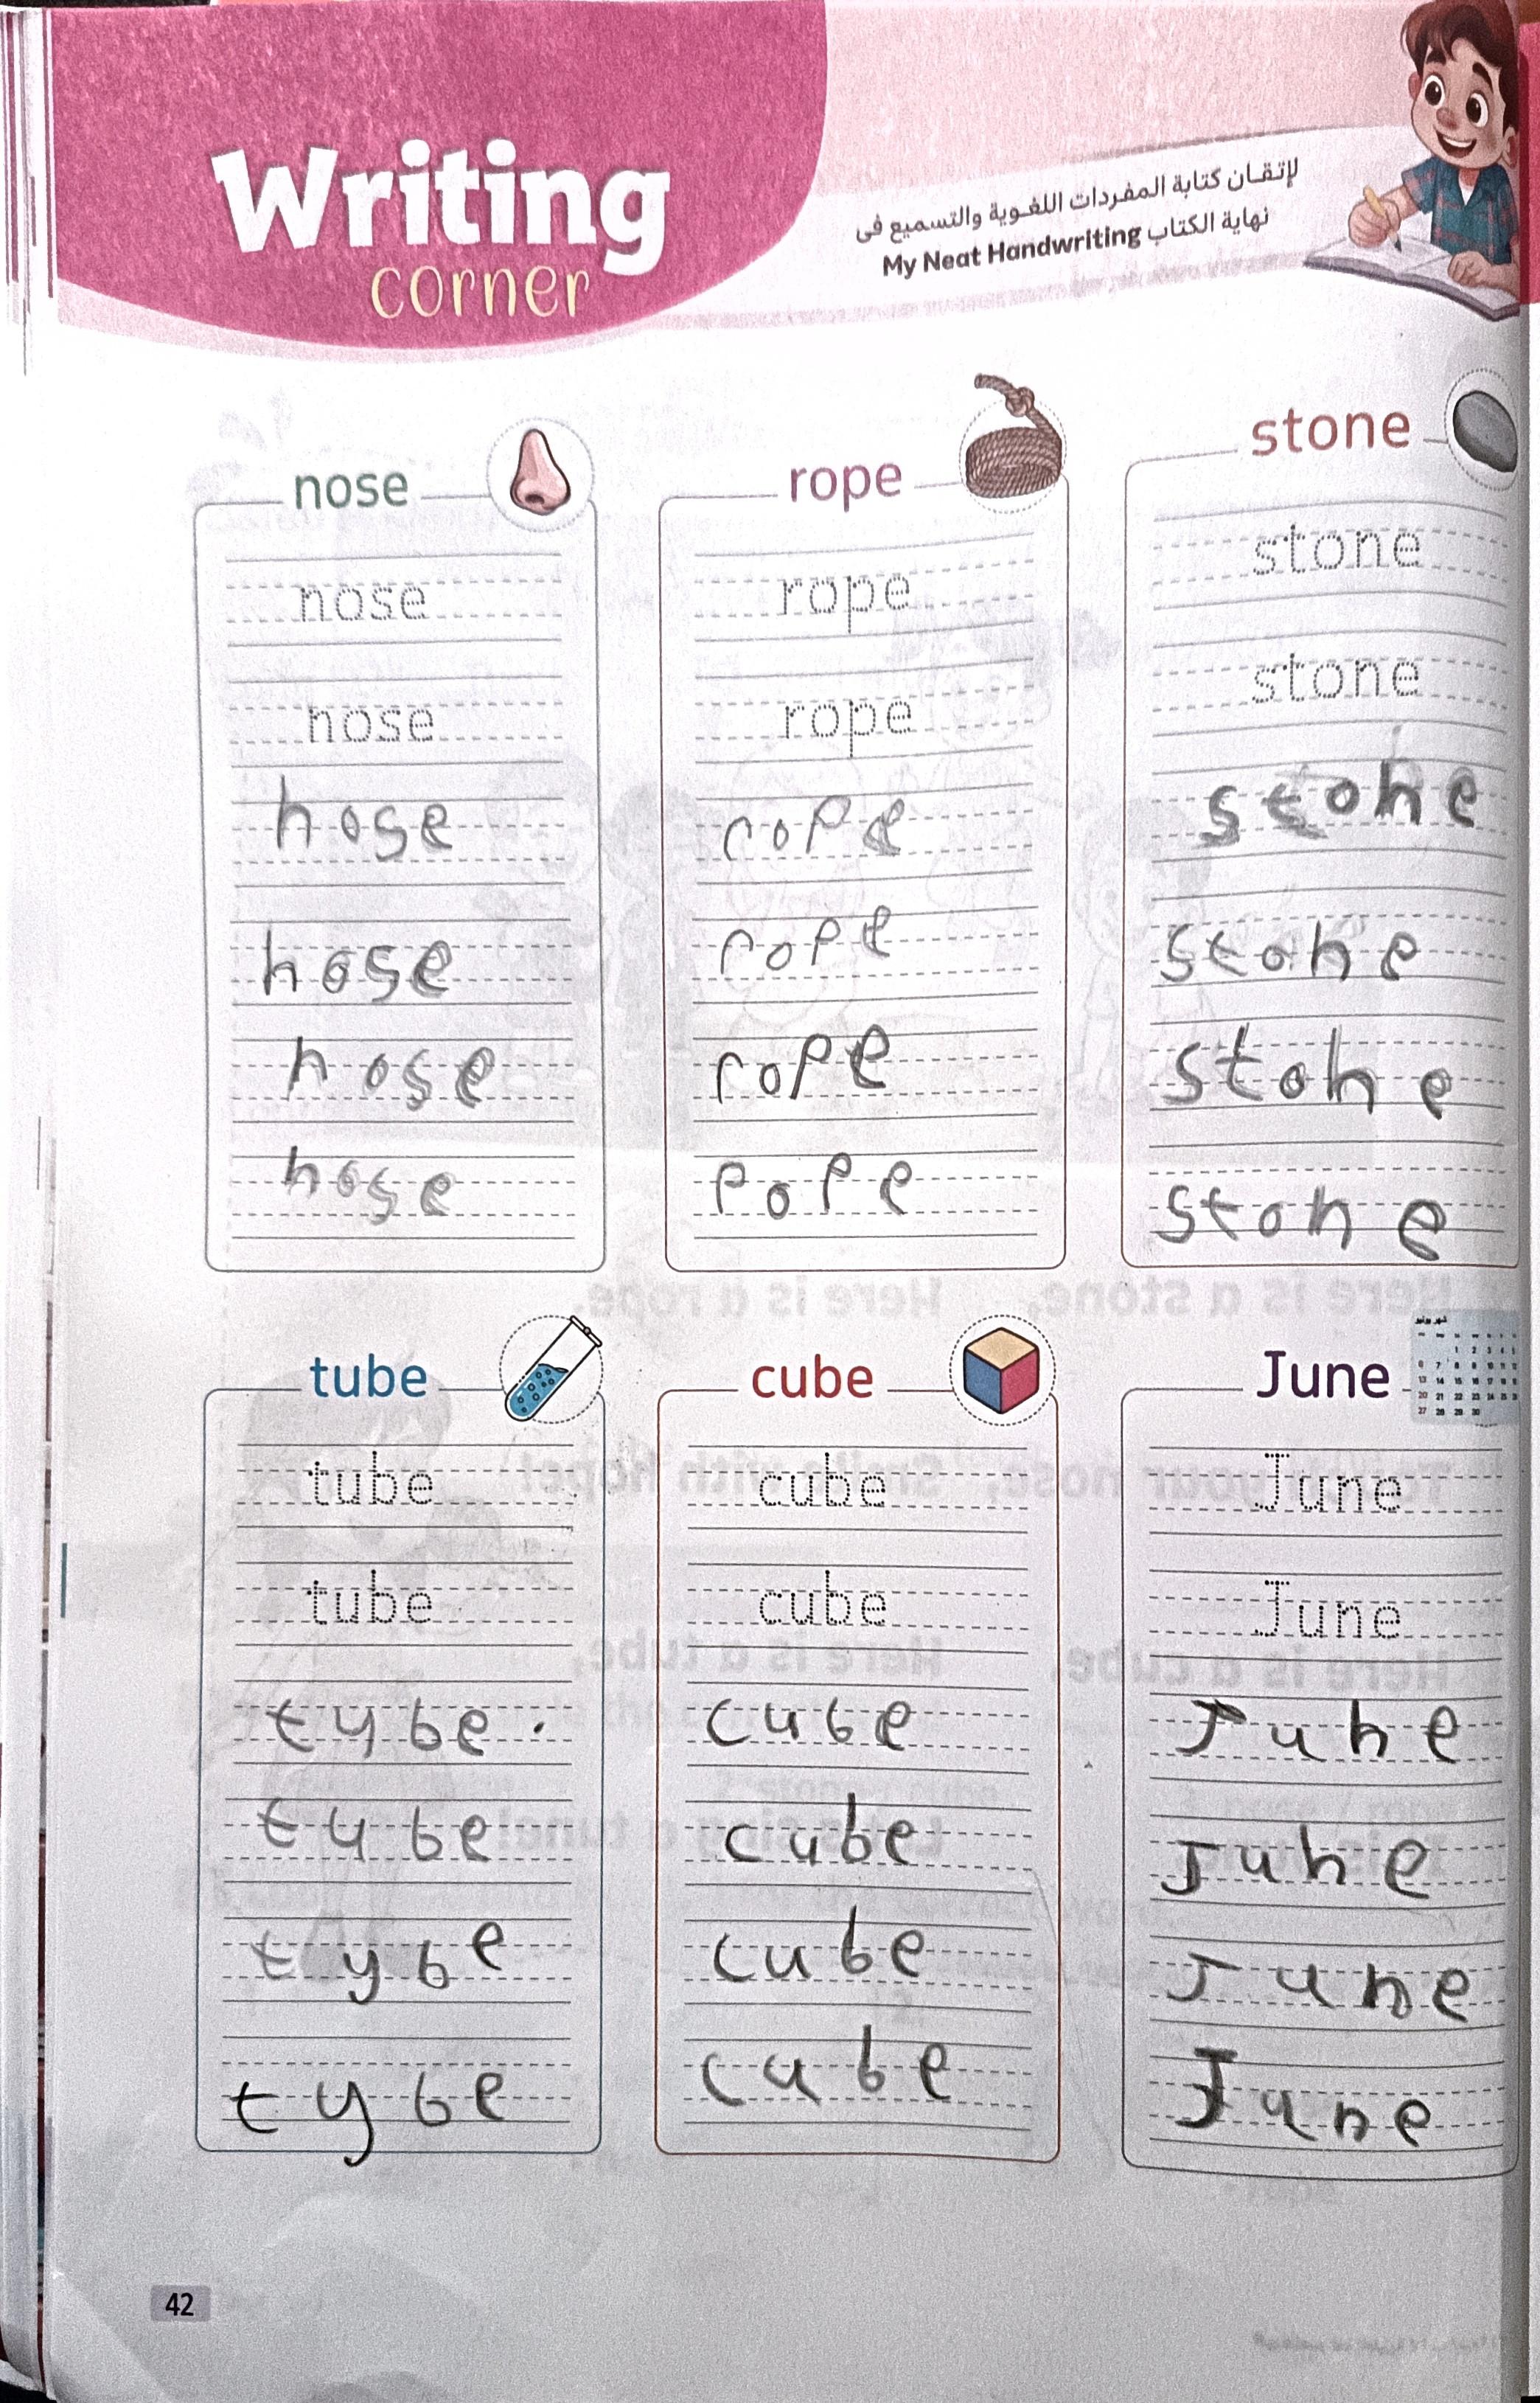 Writing
corner
لإتقان كتابة المفردات اللغوية والتسميع فى
نهاية الكتاب My Neat Handwriting
nose
nose
nose
hose
hose
hose
hose
rope
rope
rope
rope
rope
rope
pope
stone
stone
stone
stohe
stohe
stohe
stone
tube
tube
tube
tybe.
tybe
tybe
tybe
cube
cube
cube
cube
cube
cube
cube
June
شهر يونيو
June
June
Juhe
Juhe
June
June
42